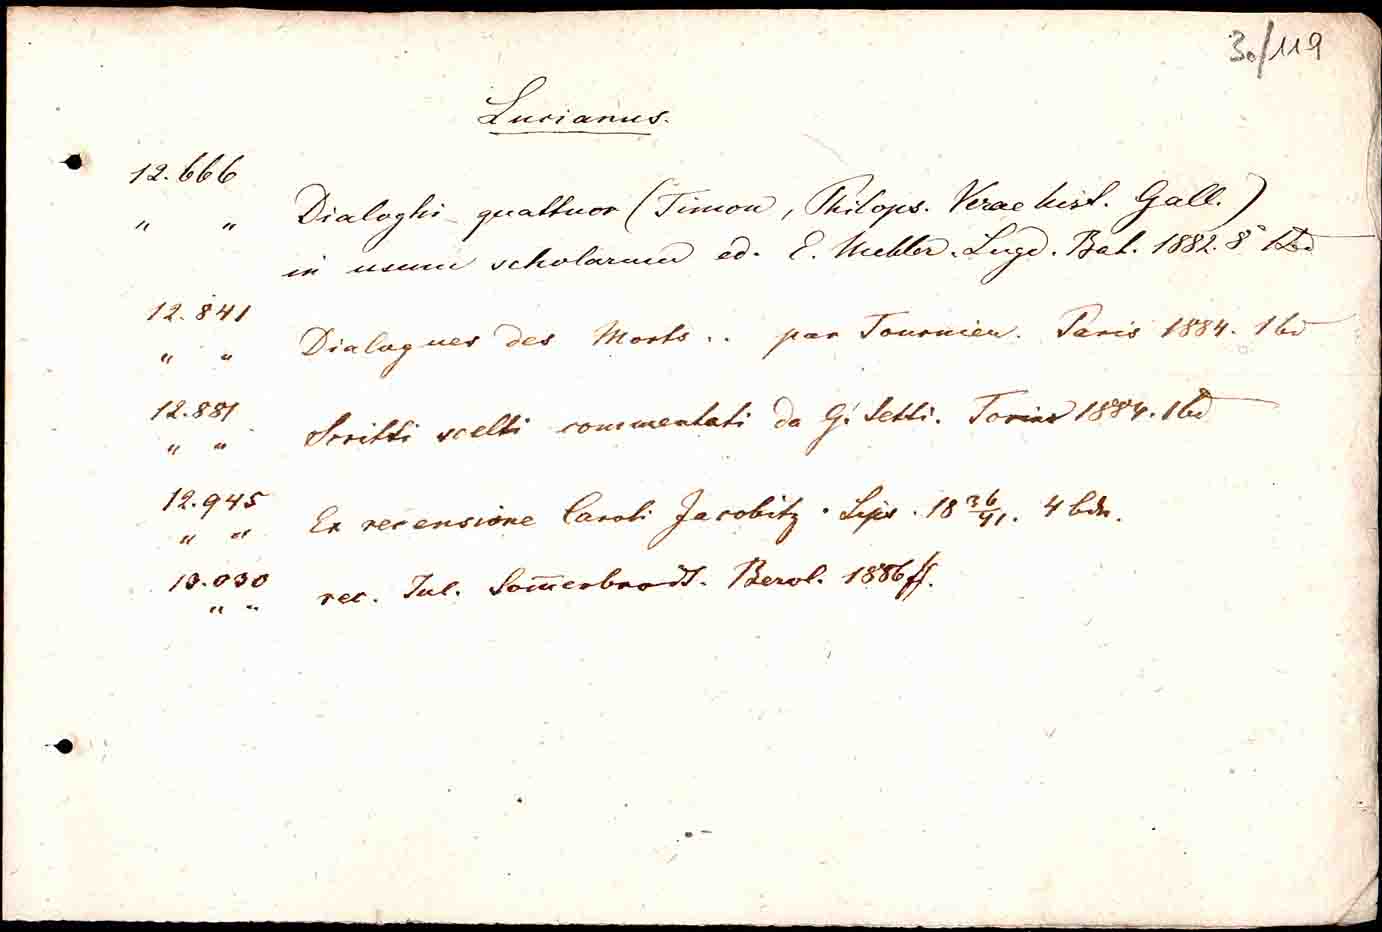 30/119
Lucianus.
12.666
" " Dialoghi quattuor (Timon, Philops. Verae hist. Gall.)
in usum scholarum ed. E. Mehler. Lugd. Bat. 1882. 8° 1 Bd
12.841
" " Dialogues des Morts .. par Tournier. Paris 1884. 1 bd
12.881
" " Scritti scelti commentati da G. Setti. Torino 1884. 1 bd
12.945
" " Ex recensione Caroli Jacobitz. Lips. 1836/41. 4 bdn.
13.030
" " rec. Jul. Som̄erbrodt. Berol. 1886 ff.